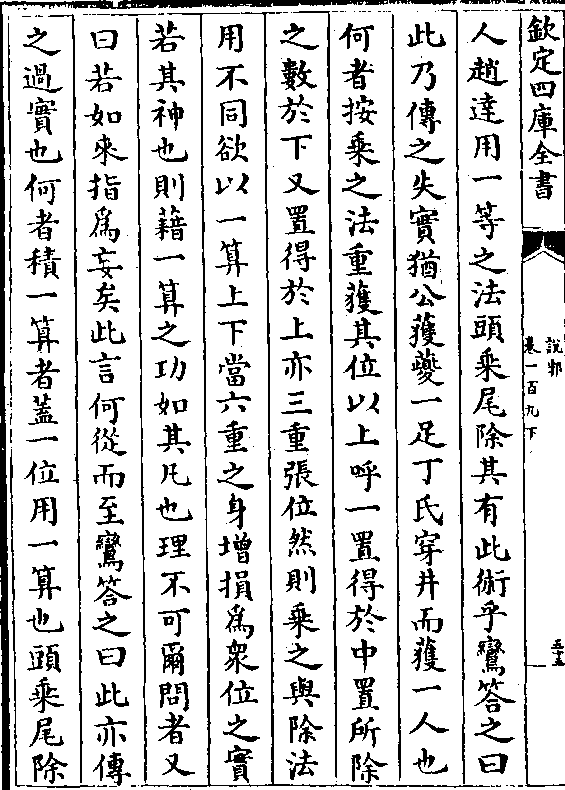 欽定四庫全書
說郛
卷一百九下
五十五
人趙達用一等之法頭乘尾除其有此術乎鸞答之曰
此乃傳之失實猶公獲夔一足丁氏穿井而獲一人也
何者按乘之法重獲其位以上呼一置得於中置所除
之數於下又置得於上亦三重張位然則乘之與除法
用不同欲以一算上下當六重之身增損為衆位之實
若其神也則藉一算之功如其凡也理不可爾問者又
曰若如來指為妄矣此言何從而至鸞答之曰此亦傳
之過實也何者積一算者蓋一位用一算也頭乘尾除